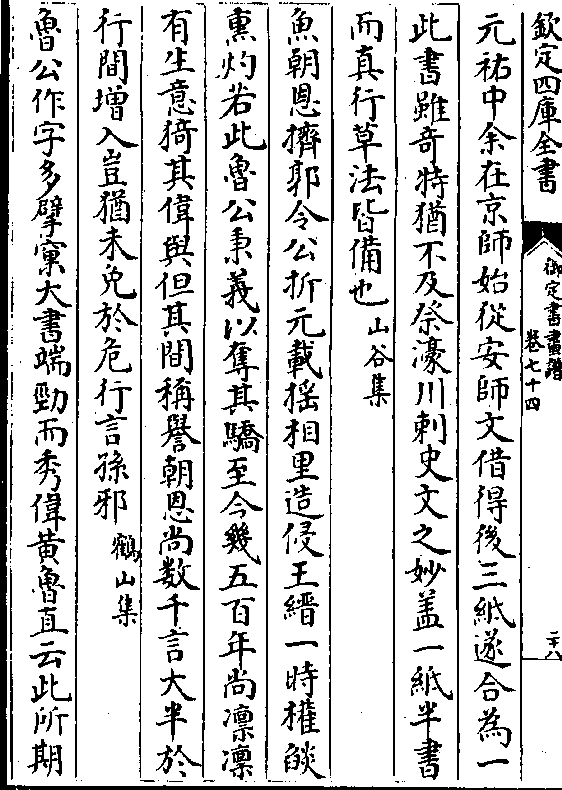 欽定四庫全書
御定書畫譜
卷七十四
二十八
元祐中余在京師始從安師文借得後三紙遂合為一
此書雖奇特猶不及祭濠州刺史文之妙盖一紙半書
而真行草法皆備也 山谷集
魚朝恩擠郭令公折元載揺相里造侵王縉一時權燄
熏灼若此魯公秉義以奪其驕至今幾五百年尚凛凛
有生意猗其偉與但其間稱譽朝恩尚数千言大半於
行間增入豈猶未免於危行言孫邪 鶴山集
魯公作字多擘窠大書端勁而秀偉黄魯直云此所期